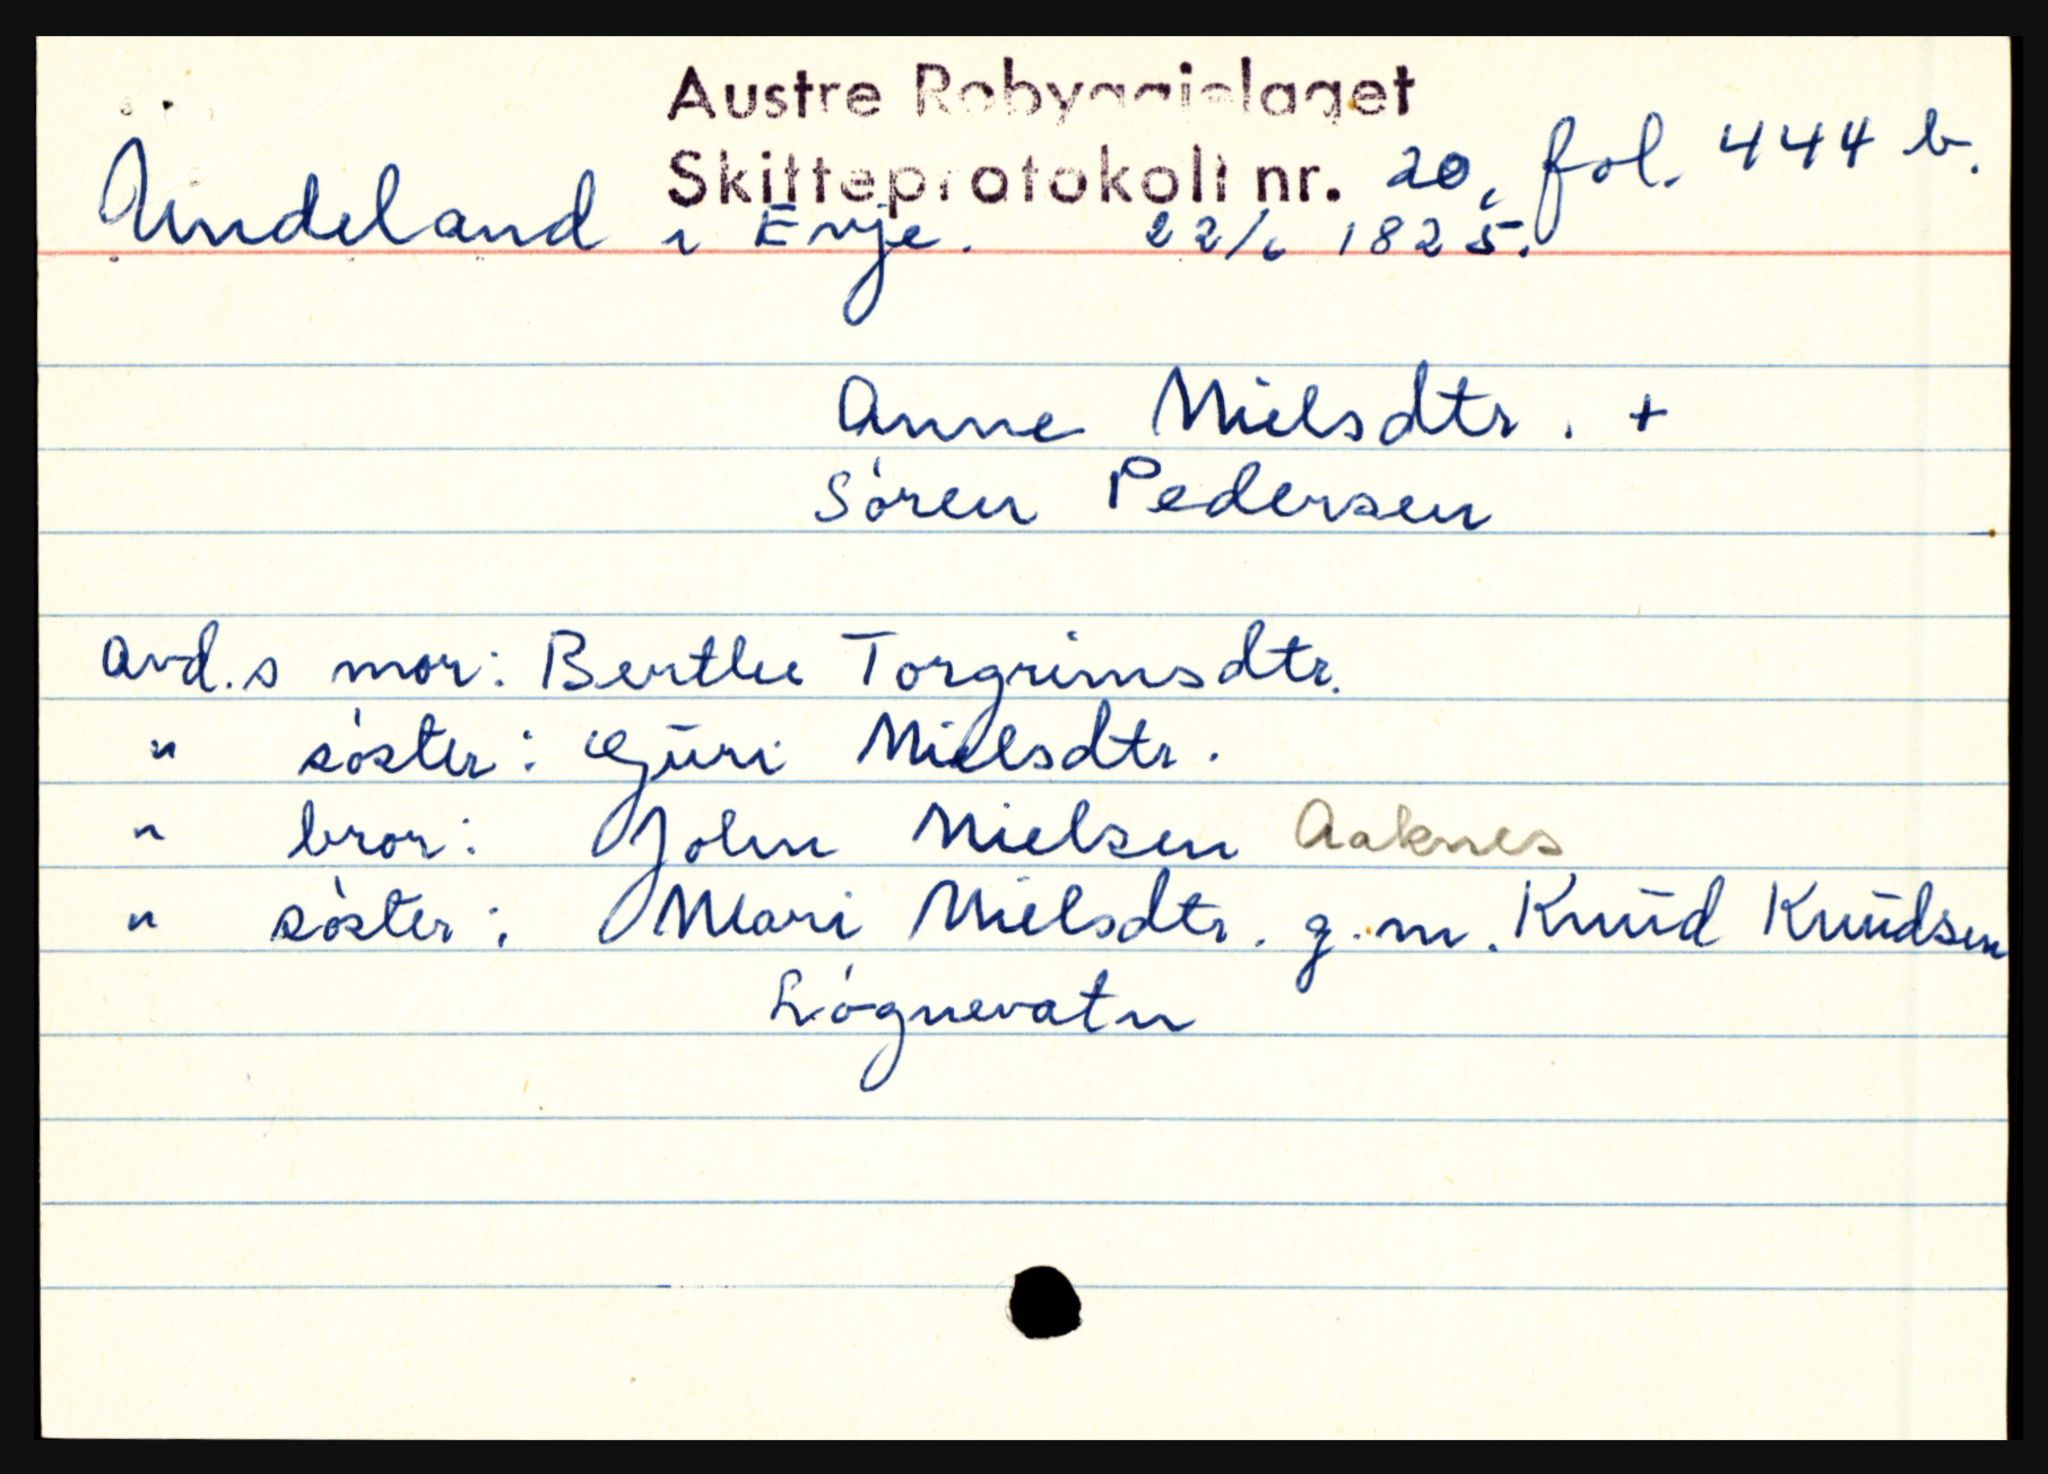 Austre Robyggjelaget
Skifteprotokoll nr. 20, fol. 444 b.
Undeland i Evje. 22/6 1825.
Anne Nielsdtr. +
Sören Pedersen
avd.s mor: Berthe Torgrimsdtr.
" söster: Guri Nielsdtr.
" bror: John Nielsen Aaknes
" söster: Mari Nielsdtr. g.m. Knud Knudsen
Lögnevatn